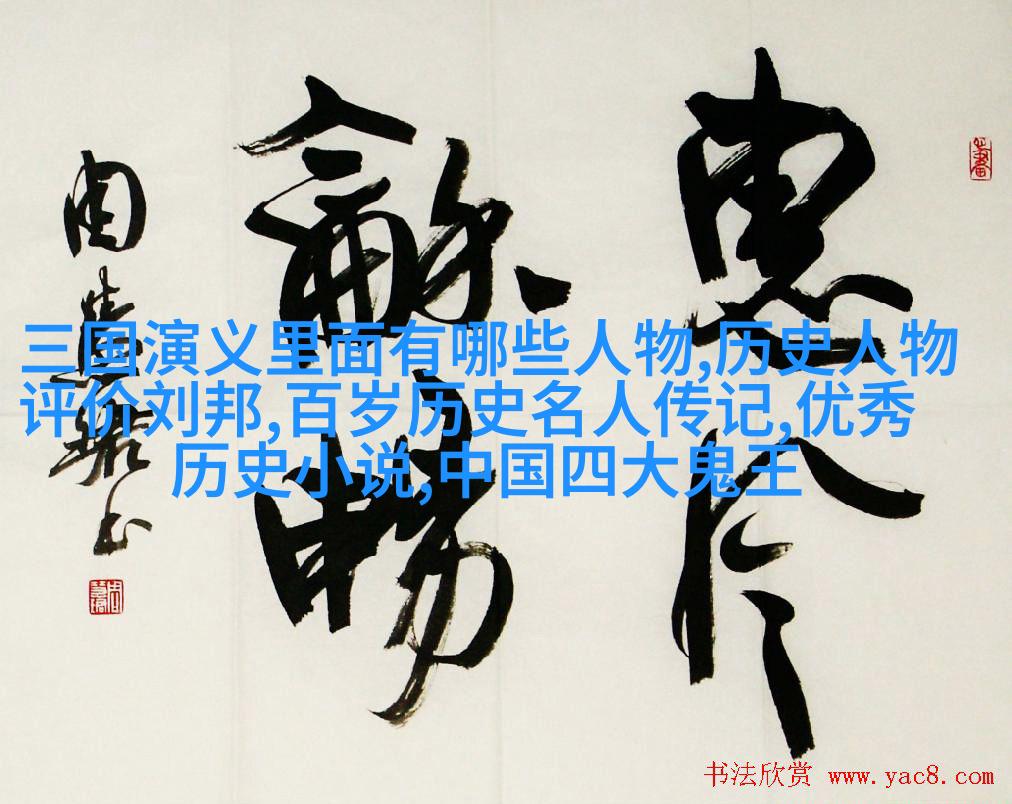 惠风
龢暢
周慧珺书
三国演义里面有哪些人物,历史人物
评价刘邦,百岁历史名人传记,优秀
历史小说,中国四大鬼王
书法欣赏 www.yac8.com